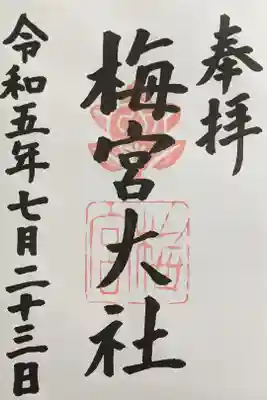 奉拝
梅宮大社
梅宮
令和五年七月二十三日